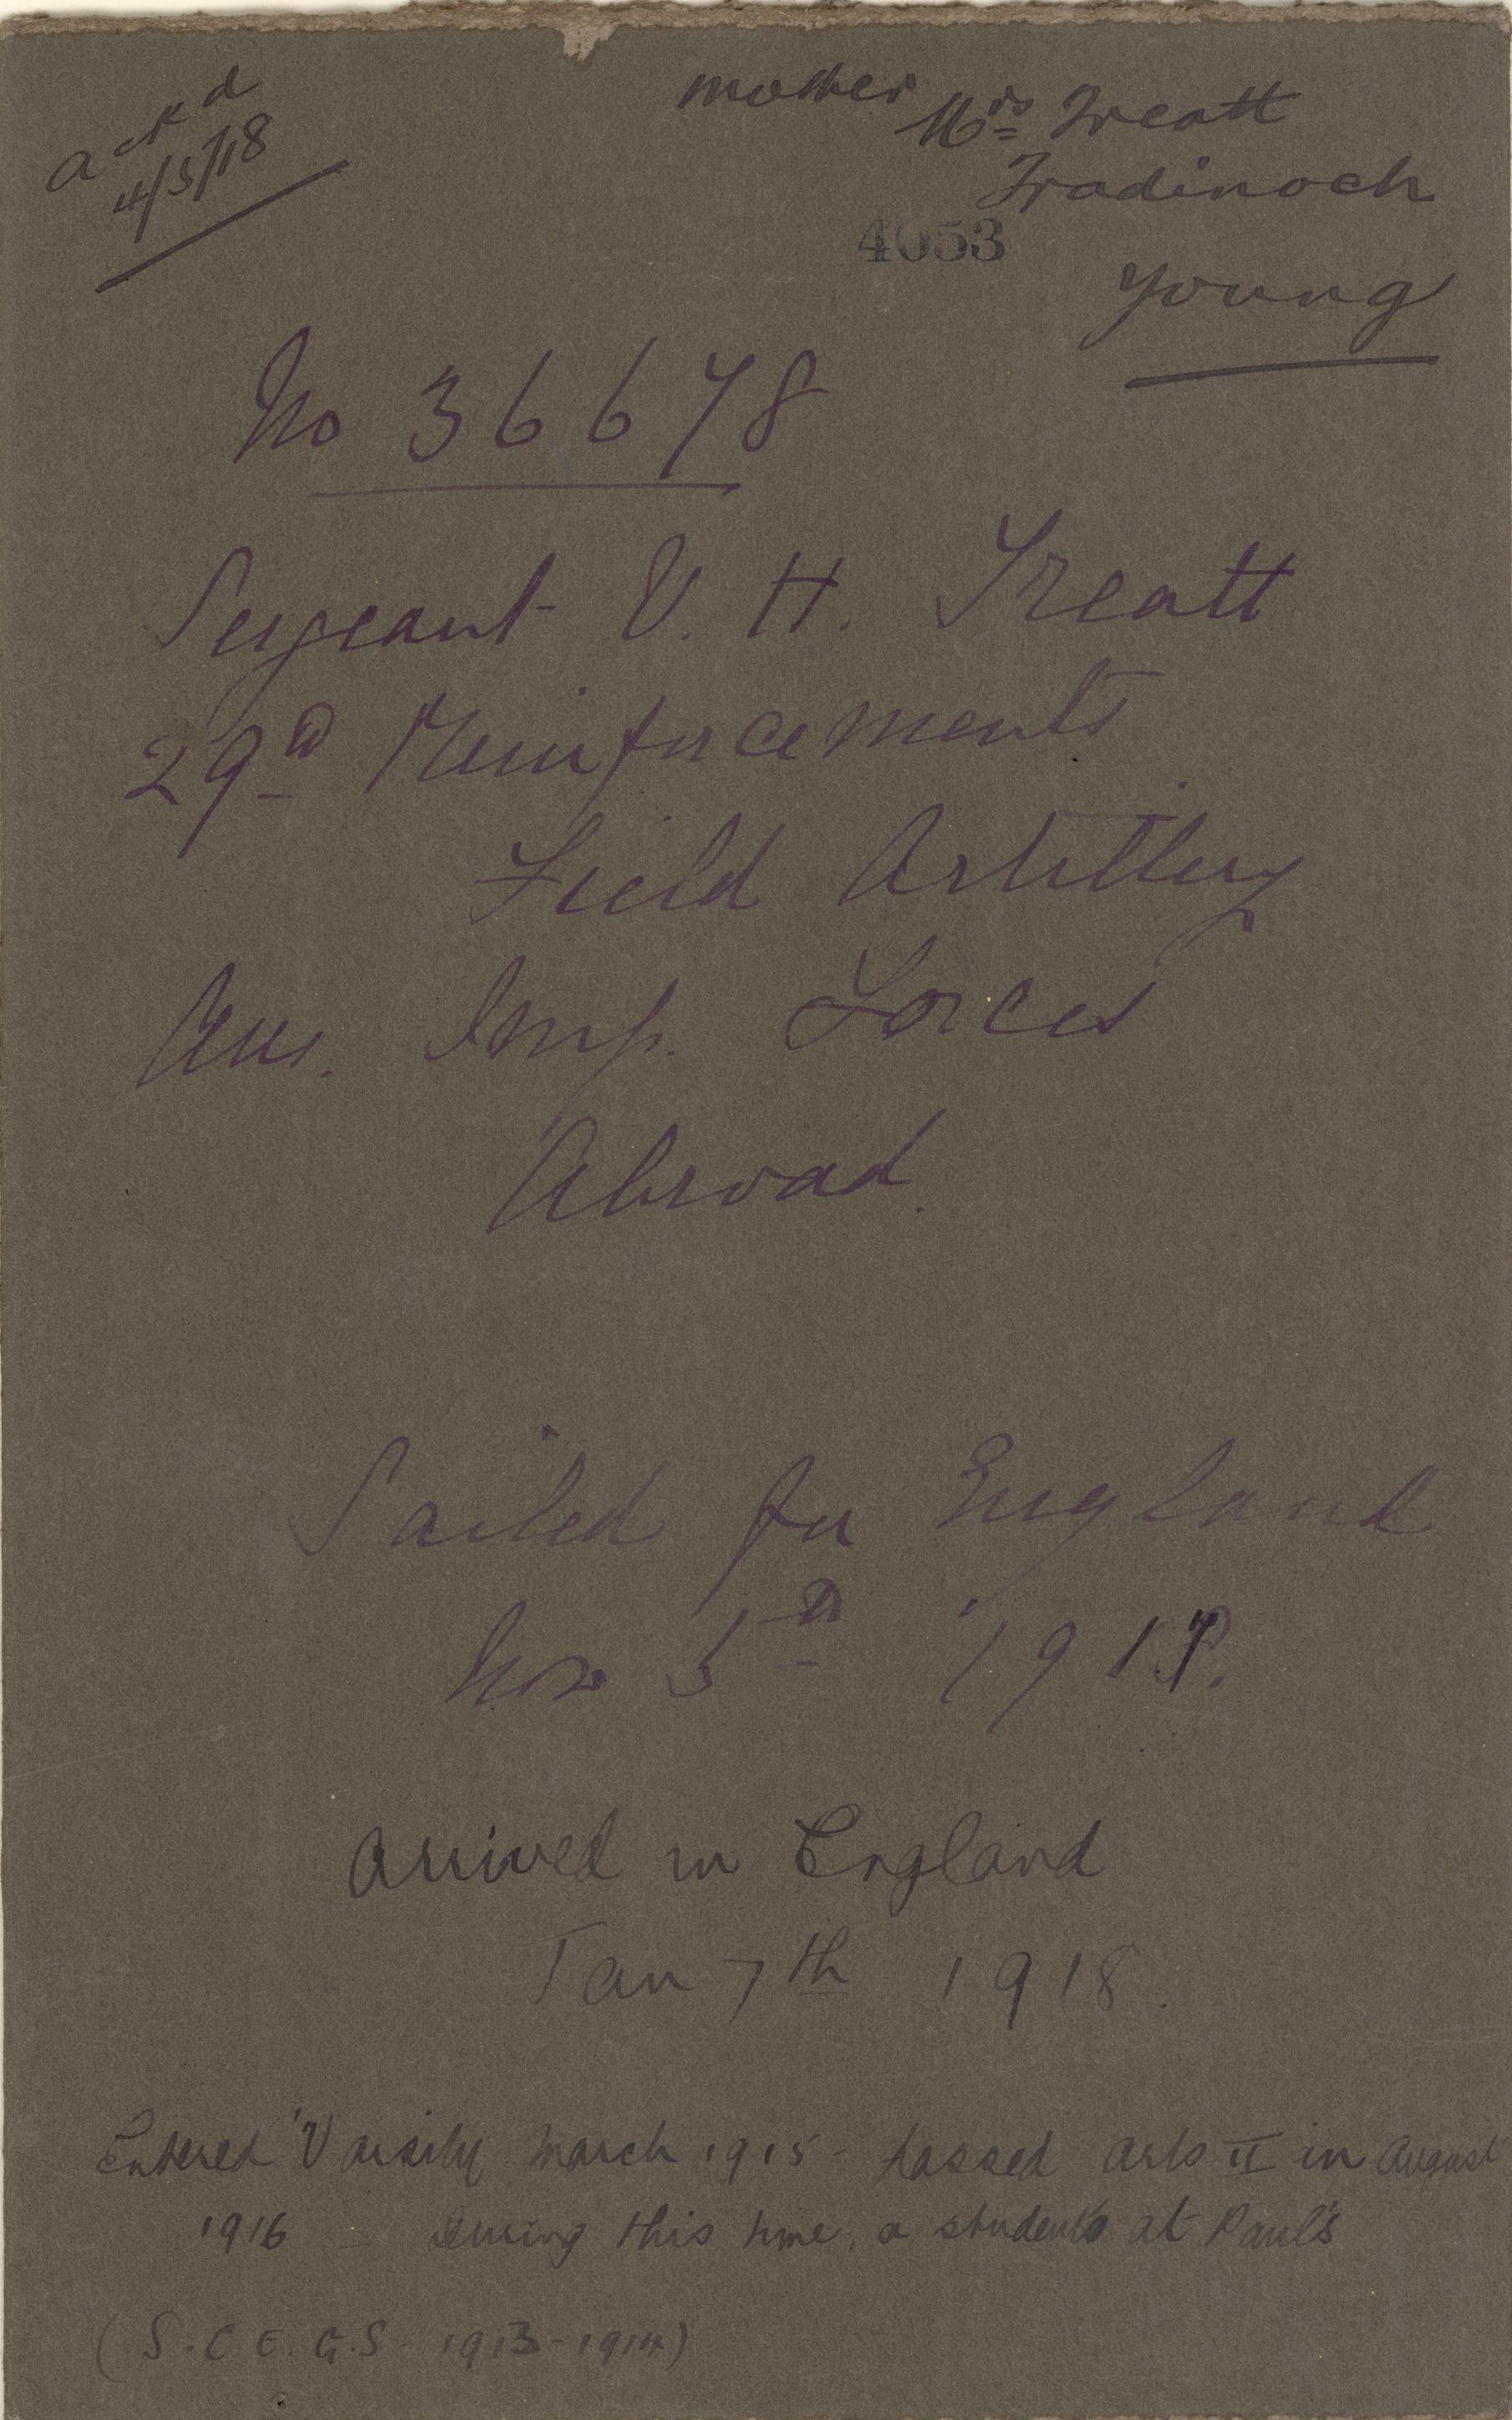 ackd
4/3/18
mother Mrs Treatt
Tradinoch
4053
Young
No 36678
Sergeant V. H. Treatt
29th Reinforcements
Field Artillery
Aus. Imp. Forces
Abroad.
Sailed for England
Nov 5th 1917.
Arrived in England
Jan 7th 1918.
Entered 'Varsity March 1915 - passed Arts II in August
1916 - During this time, a student at Paul's
(S.C.E.G.S. 1913-1914)